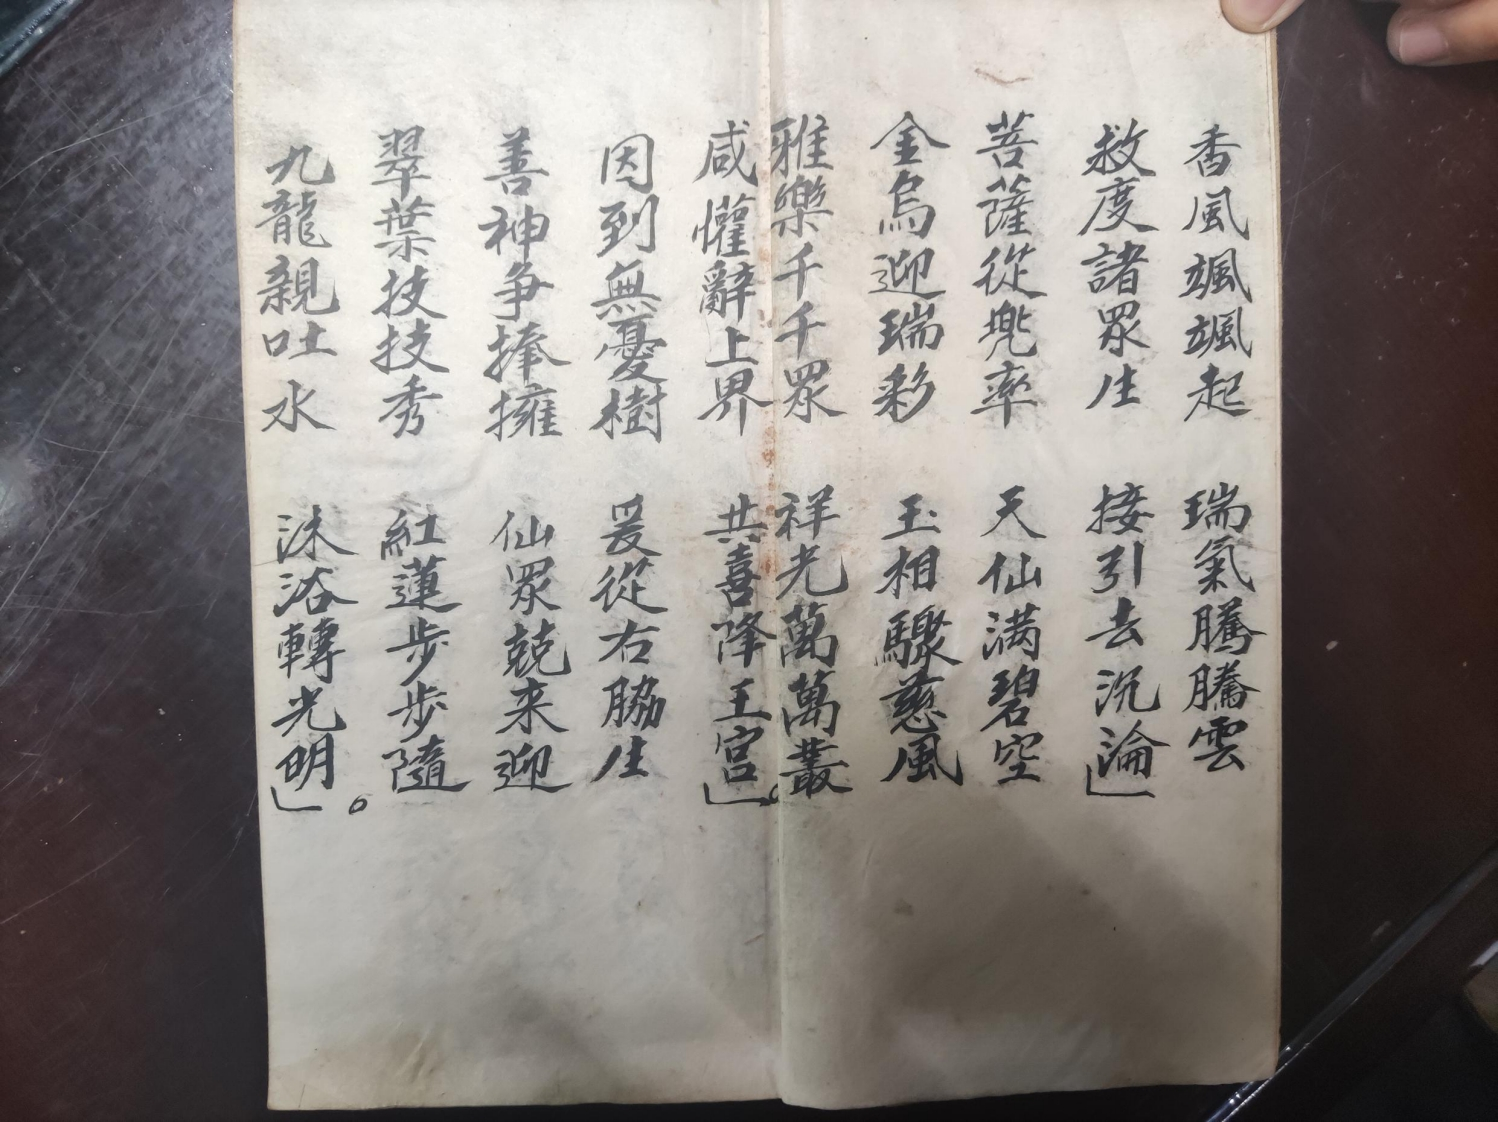 香風颯颯起 瑞氣騰騰雲
救度諸眾生 接引去沉淪」
菩薩從兠率 天仙满碧空
金烏迎瑞彩 玉相驟慈風
雅樂千千眾 祥光萬萬叢
咸懽辭上界 共喜降王宮」。
因到無憂樹 爰從右脇生
善神争捧擁 仙眾兢来迎
翠葉技技秀 紅蓮步步隨
九龍親吐水 沐浴轉光明」。